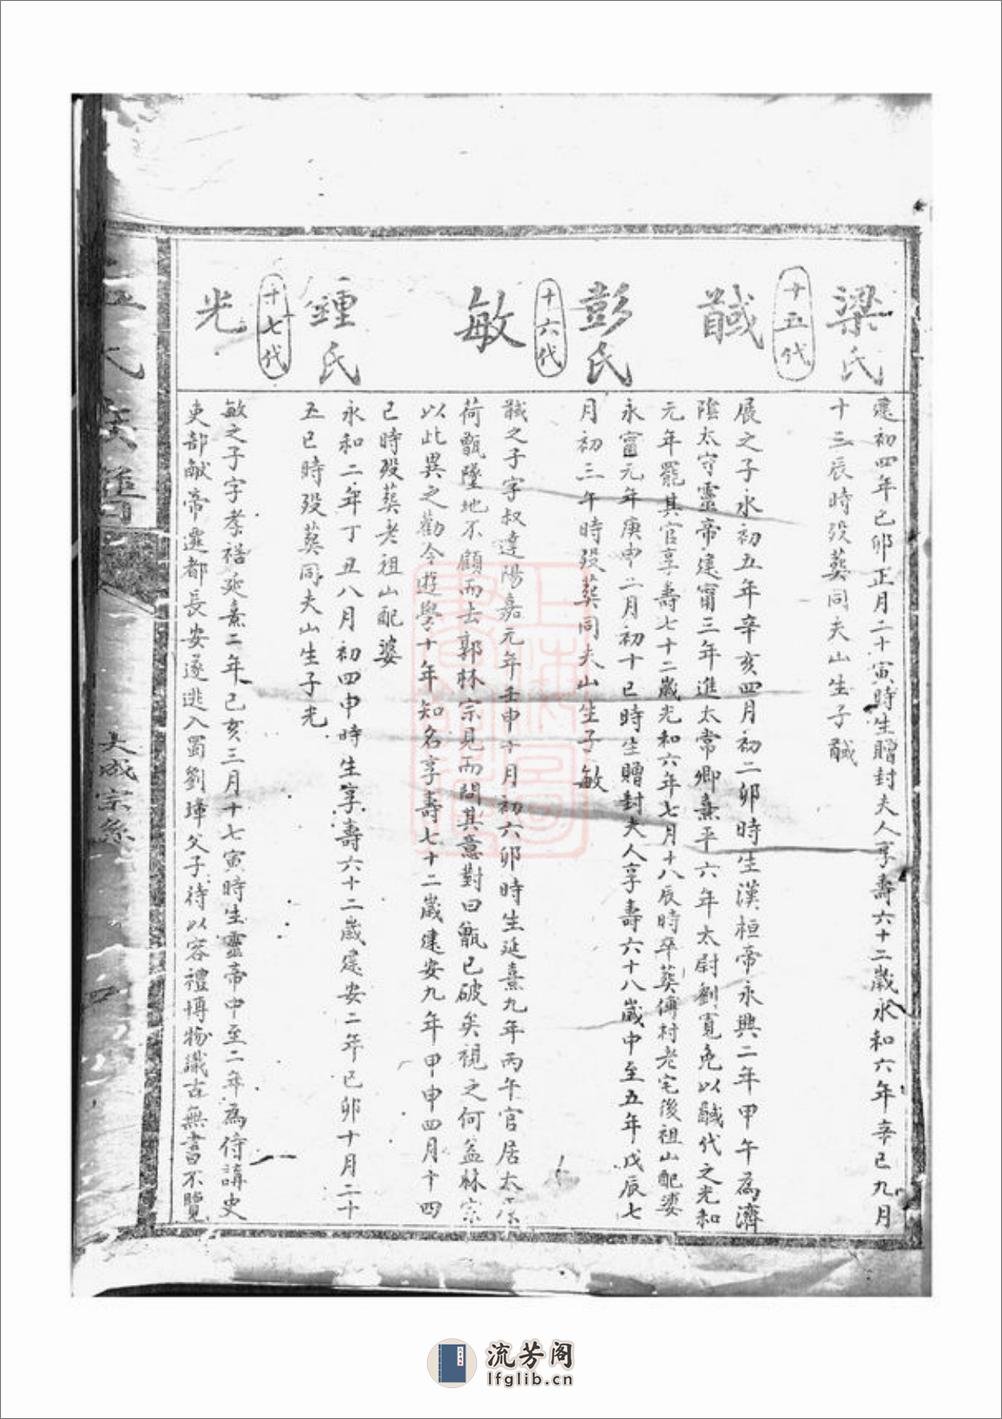 梁氏
建初四年己卯正月二十寅時生贈封夫人享壽六十二歲永和六年辛巳九月
十三辰時殁葬同夫山生子戫
十五代
戫
展之子永初五年辛亥四月初二卯時生漢桓帝永興二年甲午為濟
陰太守靈帝建甯三年進太常卿熹平六年太尉劉寬免以戫代之光和
元年罷其官享壽七十二歲光和六年七月十八辰時卒葬傅村老宅後祖山配婆
彭氏
永甯元年庚申二月初十巳時生贈封夫人享壽六十八歲中至五年戊辰七
月初三午時殁葬同夫山生子敏
十六代
敏
戫之子字叔達陽嘉元年壬申十月初六卯時生延熹九年丙午官居太原
荷甑墜地不顧而去郭林宗見而問其意對曰甑已破矣視之何益林宗
以此異之勸令遊學十年知名享壽七十二歲建安九年甲申四月十四
巳時殁葬老祖山配婆
鍾氏
永和二年丁丑八月初四申時生享壽六十二歲建安二年己卯十月二十
五巳時殁葬同夫山生子光
十七代
光
敏之子字孝禧延熹二年己亥三月十七寅時生靈帝中至二年為侍講史
吏部献帝遷都長安遂逃入蜀劉璋父子待以客禮博物識古無書不覽
大成宗系
流芳阁
lfglib.cn